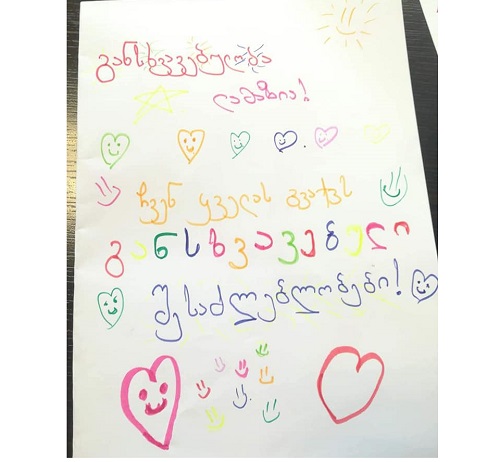 განსხვავებულობა
ლამაზია!
ჩვენ ყველას გვაქვს
განსხვავებული
შესაძლებლობები!